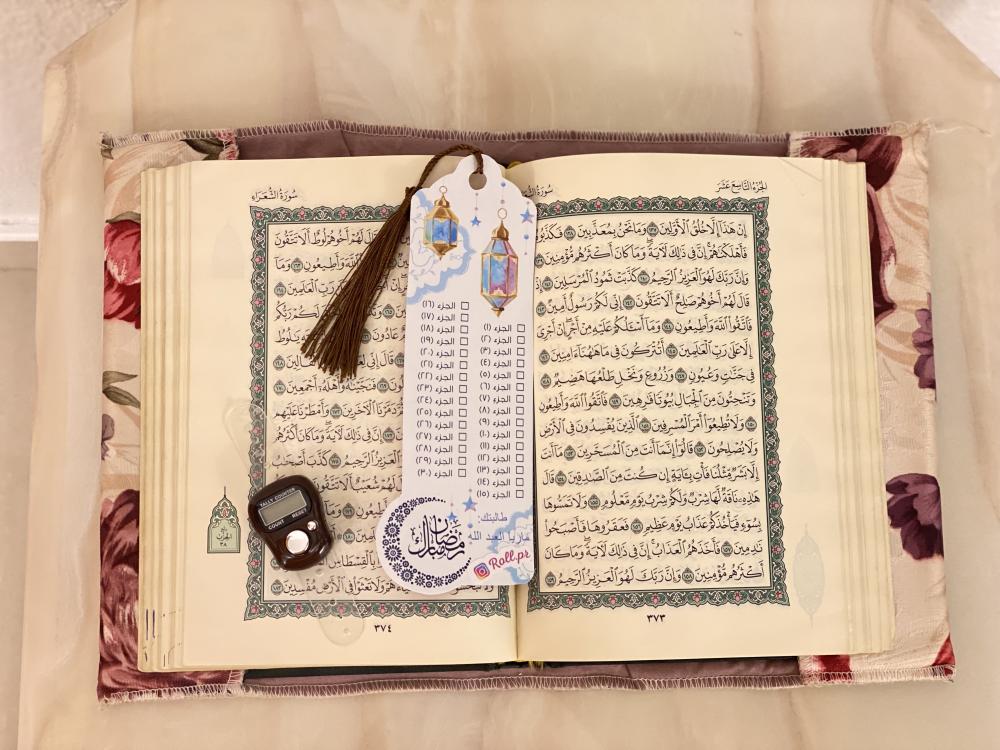 الجزء التاسع عشر
إِنْ هَٰذَآ إِلَّا خُلُقُ ٱلْأَوَّلِينَ ١٣٧ وَمَا نَحْنُ بِمُعَذَّبِينَ ١٣٨ فَكَذَّبُوهُ
فَأَهْلَكْنَٰهُمْ إِنَّ فِي ذَٰلِكَ لَأٓيَةً وَمَا كَانَ أَكْثَرُهُم مُّؤْمِنِينَ ١٣٩
وَإِنَّ رَبَّكَ لَهُوَ ٱلْعَزِيزُ ٱلرَّحِيمُ ١٤٠ كَذَّبَتْ ثَمُودُ ٱلْمُرْسَلِينَ ١٤١ إِذْ
قَالَ لَهُمْ أَخُوهُمْ صَٰلِحٌ أَلَا تَتَّقُونَ ١٤٢ إِنِّي لَكُمْ رَسُولٌ أَمِينٌ ١٤٣
فَٱتَّقُوا۟ ٱللَّهَ وَأَطِيعُونِ ١٤٤ وَمَآ أَسْـَٔلُكُمْ عَلَيْهِ مِنْ أَجْرٍ إِنْ أَجْرِيَ
إِلَّا عَلَىٰ رَبِّ ٱلْعَٰلَمِينَ ١٤٥ أَتُتْرَكُونَ فِي مَا هَٰهُنَآ ءَامِنِينَ ١٤٦
فِي جَنَّٰتٍ وَعُيُونٍ ١٤٧ وَزُرُوعٍ وَنَخْلٍ طَلْعُهَا هَضِيمٌ ١٤٨
وَتَنْحِتُونَ مِنَ ٱلْجِبَالِ بُيُوتًا فَٰرِهِينَ ١٤٩ فَٱتَّقُوا۟ ٱللَّهَ وَأَطِيعُونِ
١٥٠ وَلَا تُطِيعُوٓا۟ أَمْرَ ٱلْمُسْرِفِينَ ١٥١ ٱلَّذِينَ يُفْسِدُونَ فِي ٱلْأَرْضِ
وَلَا يُصْلِحُونَ ١٥٢ قَالُوٓا۟ إِنَّمَآ أَنتَ مِنَ ٱلْمُسَحَّرِينَ ١٥٣ مَآ أَنتَ
إِلَّا بَشَرٌ مِّثْلُنَا فَأْتِ بِـَٔايَةٍ إِن كُنتَ مِنَ ٱلصَّٰدِقِينَ ١٥٤ قَالَ
هَٰذِهِۦ نَاقَةٌ لَّهَا شِرْبٌ وَلَكُمْ شِرْبُ يَوْمٍ مَّعْلُومٍ ١٥٥ وَلَا تَمَسُّوهَا
بِسُوٓءٍ فَيَأْخُذَكُمْ عَذَابُ يَوْمٍ عَظِيمٍ ١٥٦ فَعَقَرُوهَا فَأَصْبَحُوا۟
نَٰدِمِينَ ١٥٧ فَأَخَذَهُمُ ٱلْعَذَابُ إِنَّ فِي ذَٰلِكَ لَأٓيَةً وَمَا كَانَ
أَكْثَرُهُم مُّؤْمِنِينَ ١٥٨ وَإِنَّ رَبَّكَ لَهُوَ ٱلْعَزِيزُ ٱلرَّحِيمُ ١٥٩
٣٧٣
الجزء (١)
الجزء (٢)
الجزء (٣)
الجزء (٤)
الجزء (٥)
الجزء (٦)
الجزء (٧)
الجزء (٨)
الجزء (٩)
الجزء (١٠)
الجزء (١١)
الجزء (١٢)
الجزء (١٣)
الجزء (١٤)
الجزء (١٥)
الجزء (١٦)
الجزء (١٧)
الجزء (١٨)
الجزء (١٩)
الجزء (٢٠)
الجزء (٢١)
الجزء (٢٢)
الجزء (٢٣)
الجزء (٢٤)
الجزء (٢٥)
الجزء (٢٦)
الجزء (٢٧)
الجزء (٢٨)
الجزء (٢٩)
الجزء (٣٠)
طالبتك:
ماريا العبد الله
Roll.pr
رمضان مبارك
سورة الشعراء
لَهُمْ أَخُوهُمْ لُوطٌ أَلَا تَتَّقُونَ
ٱللَّهَ وَأَطِيعُونِ ١٦٣ وَمَآ
رَبِّ ٱلْعَٰلَمِينَ ١٦٤
لَكُمْ رَبُّكُم
عَادُونَ ١٦٦
يَٰلُوطُ
قَالَ إِنِّي
فَنَجَّيْنَٰهُ وَأَهْلَهُۥٓ أَجْمَعِينَ ١٧٠
دَمَّرْنَا ٱلْأٓخَرِينَ ١٧٢ وَأَمْطَرْنَا عَلَيْهِم
إِنَّ فِي ذَٰلِكَ لَأٓيَةً وَمَا كَانَ أَكْثَرُهُم
ٱلْعَزِيزُ ٱلرَّحِيمُ ١٧٥ كَذَّبَ أَصْحَٰبُ
لَهُمْ شُعَيْبٌ أَلَا تَتَّقُونَ
وَأَطِيعُونِ
بِٱلْقِسْطَاسِ
وَلَا تَعْثَوْا۟ فِي ٱلْأَرْضِ مُفْسِدِينَ ١٨٣
٣٧٤
الحزب
٣٨
TALLY COUNTER
COUNT
RESET